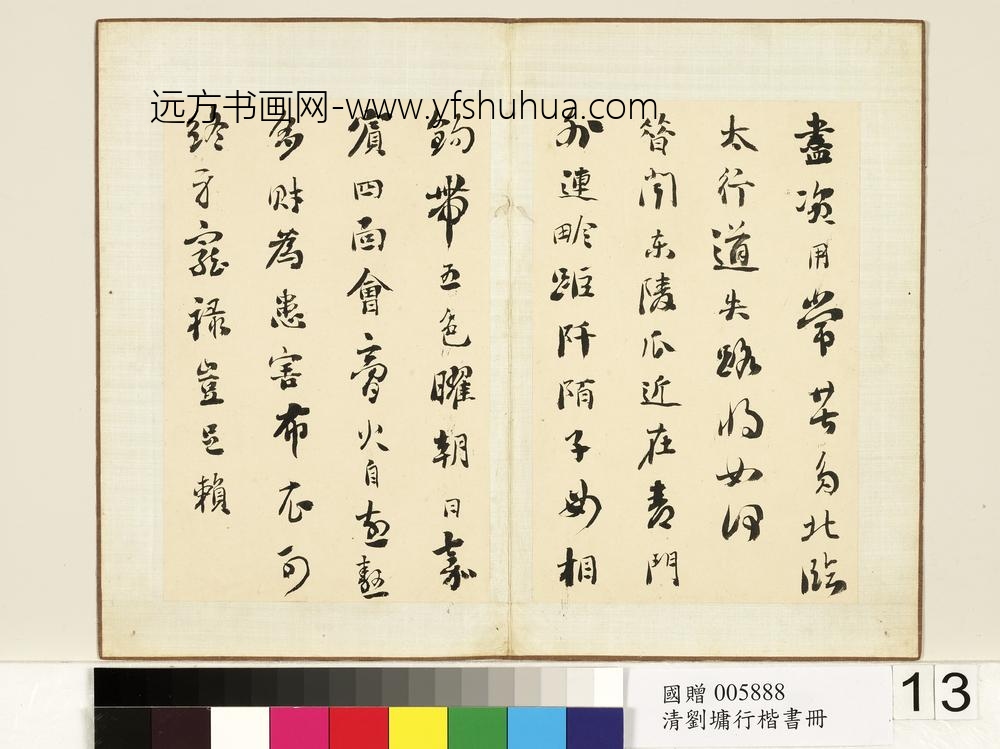 盡資用常苦多北臨
太行道失路將如何
昔聞東陵瓜近在青門
外連畛距阡陌子母相
鉤帶五色曜朝日嘉
賓四面會膏火自煎熬
多財為患害布衣可
終身寵祿豈足賴
远方书画网-www.yfshuhua.com
國贈 005888
清劉墉行楷書冊
13